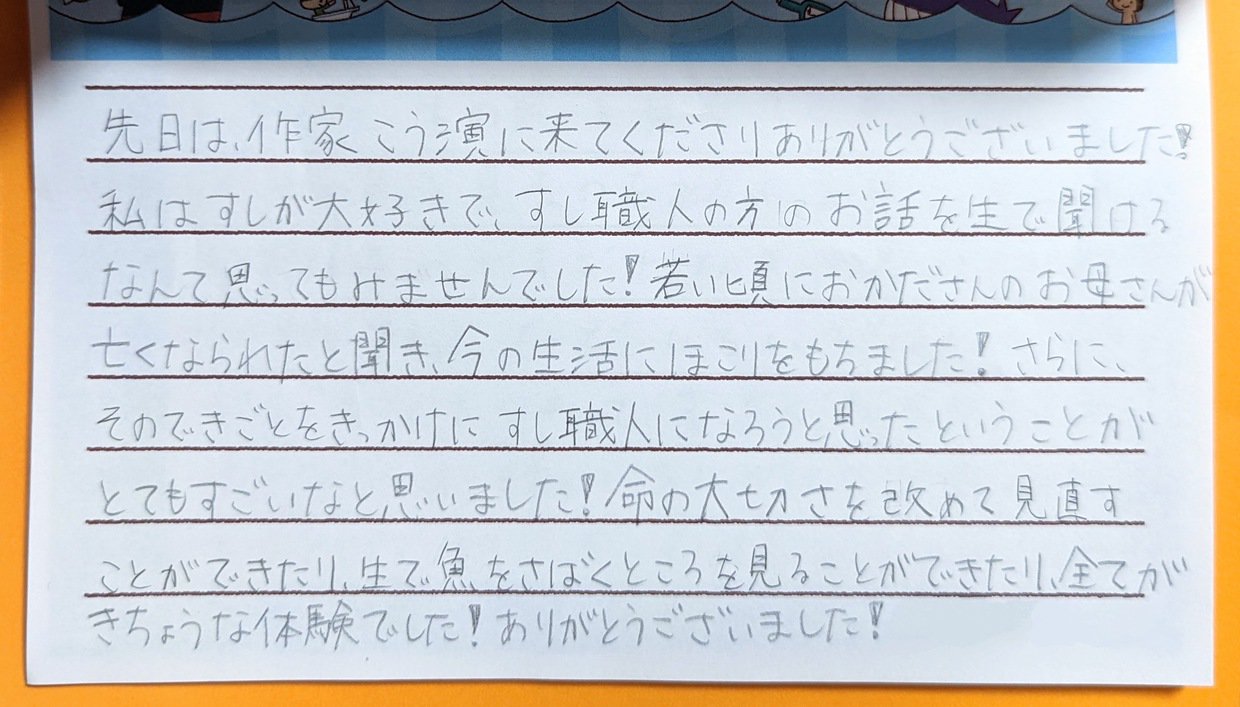 先日は、作家こう演に来てくださりありがとうございました!
私はすしが大好きで、すし職人の方のお話を生で聞ける
なんて思ってもみませんでした!若い頃におかださんのお母さんが
亡くなられたと聞き、今の生活にほこりをもちました!さらに、
そのできごとをきっかけにすし職人になろうと思ったということが
とてもすごいなと思いました!命の大切さを改めて見直す
ことができたり、生で魚をさばくところを見ることができたり、全てが
きちょうな体験でした!ありがとうございました!